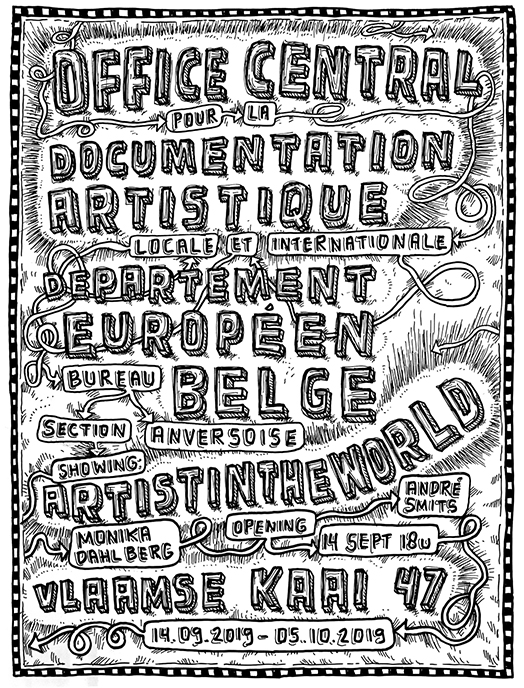 OFFICE CENTRAL
POUR LA
DOCUMENTATION
ARTISTIQUE
LOCALE ET INTERNATIONALE
DEPARTEMENT
EUROPÉEN
BUREAU BELGE
SECTION ANVERSOISE
SHOWING:
ARTISTINTHEWORLD
ANDRÉ SMITS
MONIKA DAHLBERG
OPENING
14 SEPT 18U
VLAAMSE KAAI 47
14.09.2019 - 05.10.2019